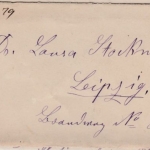 79
Dr. Laura Stockm
Leipzig.
Brandweg No